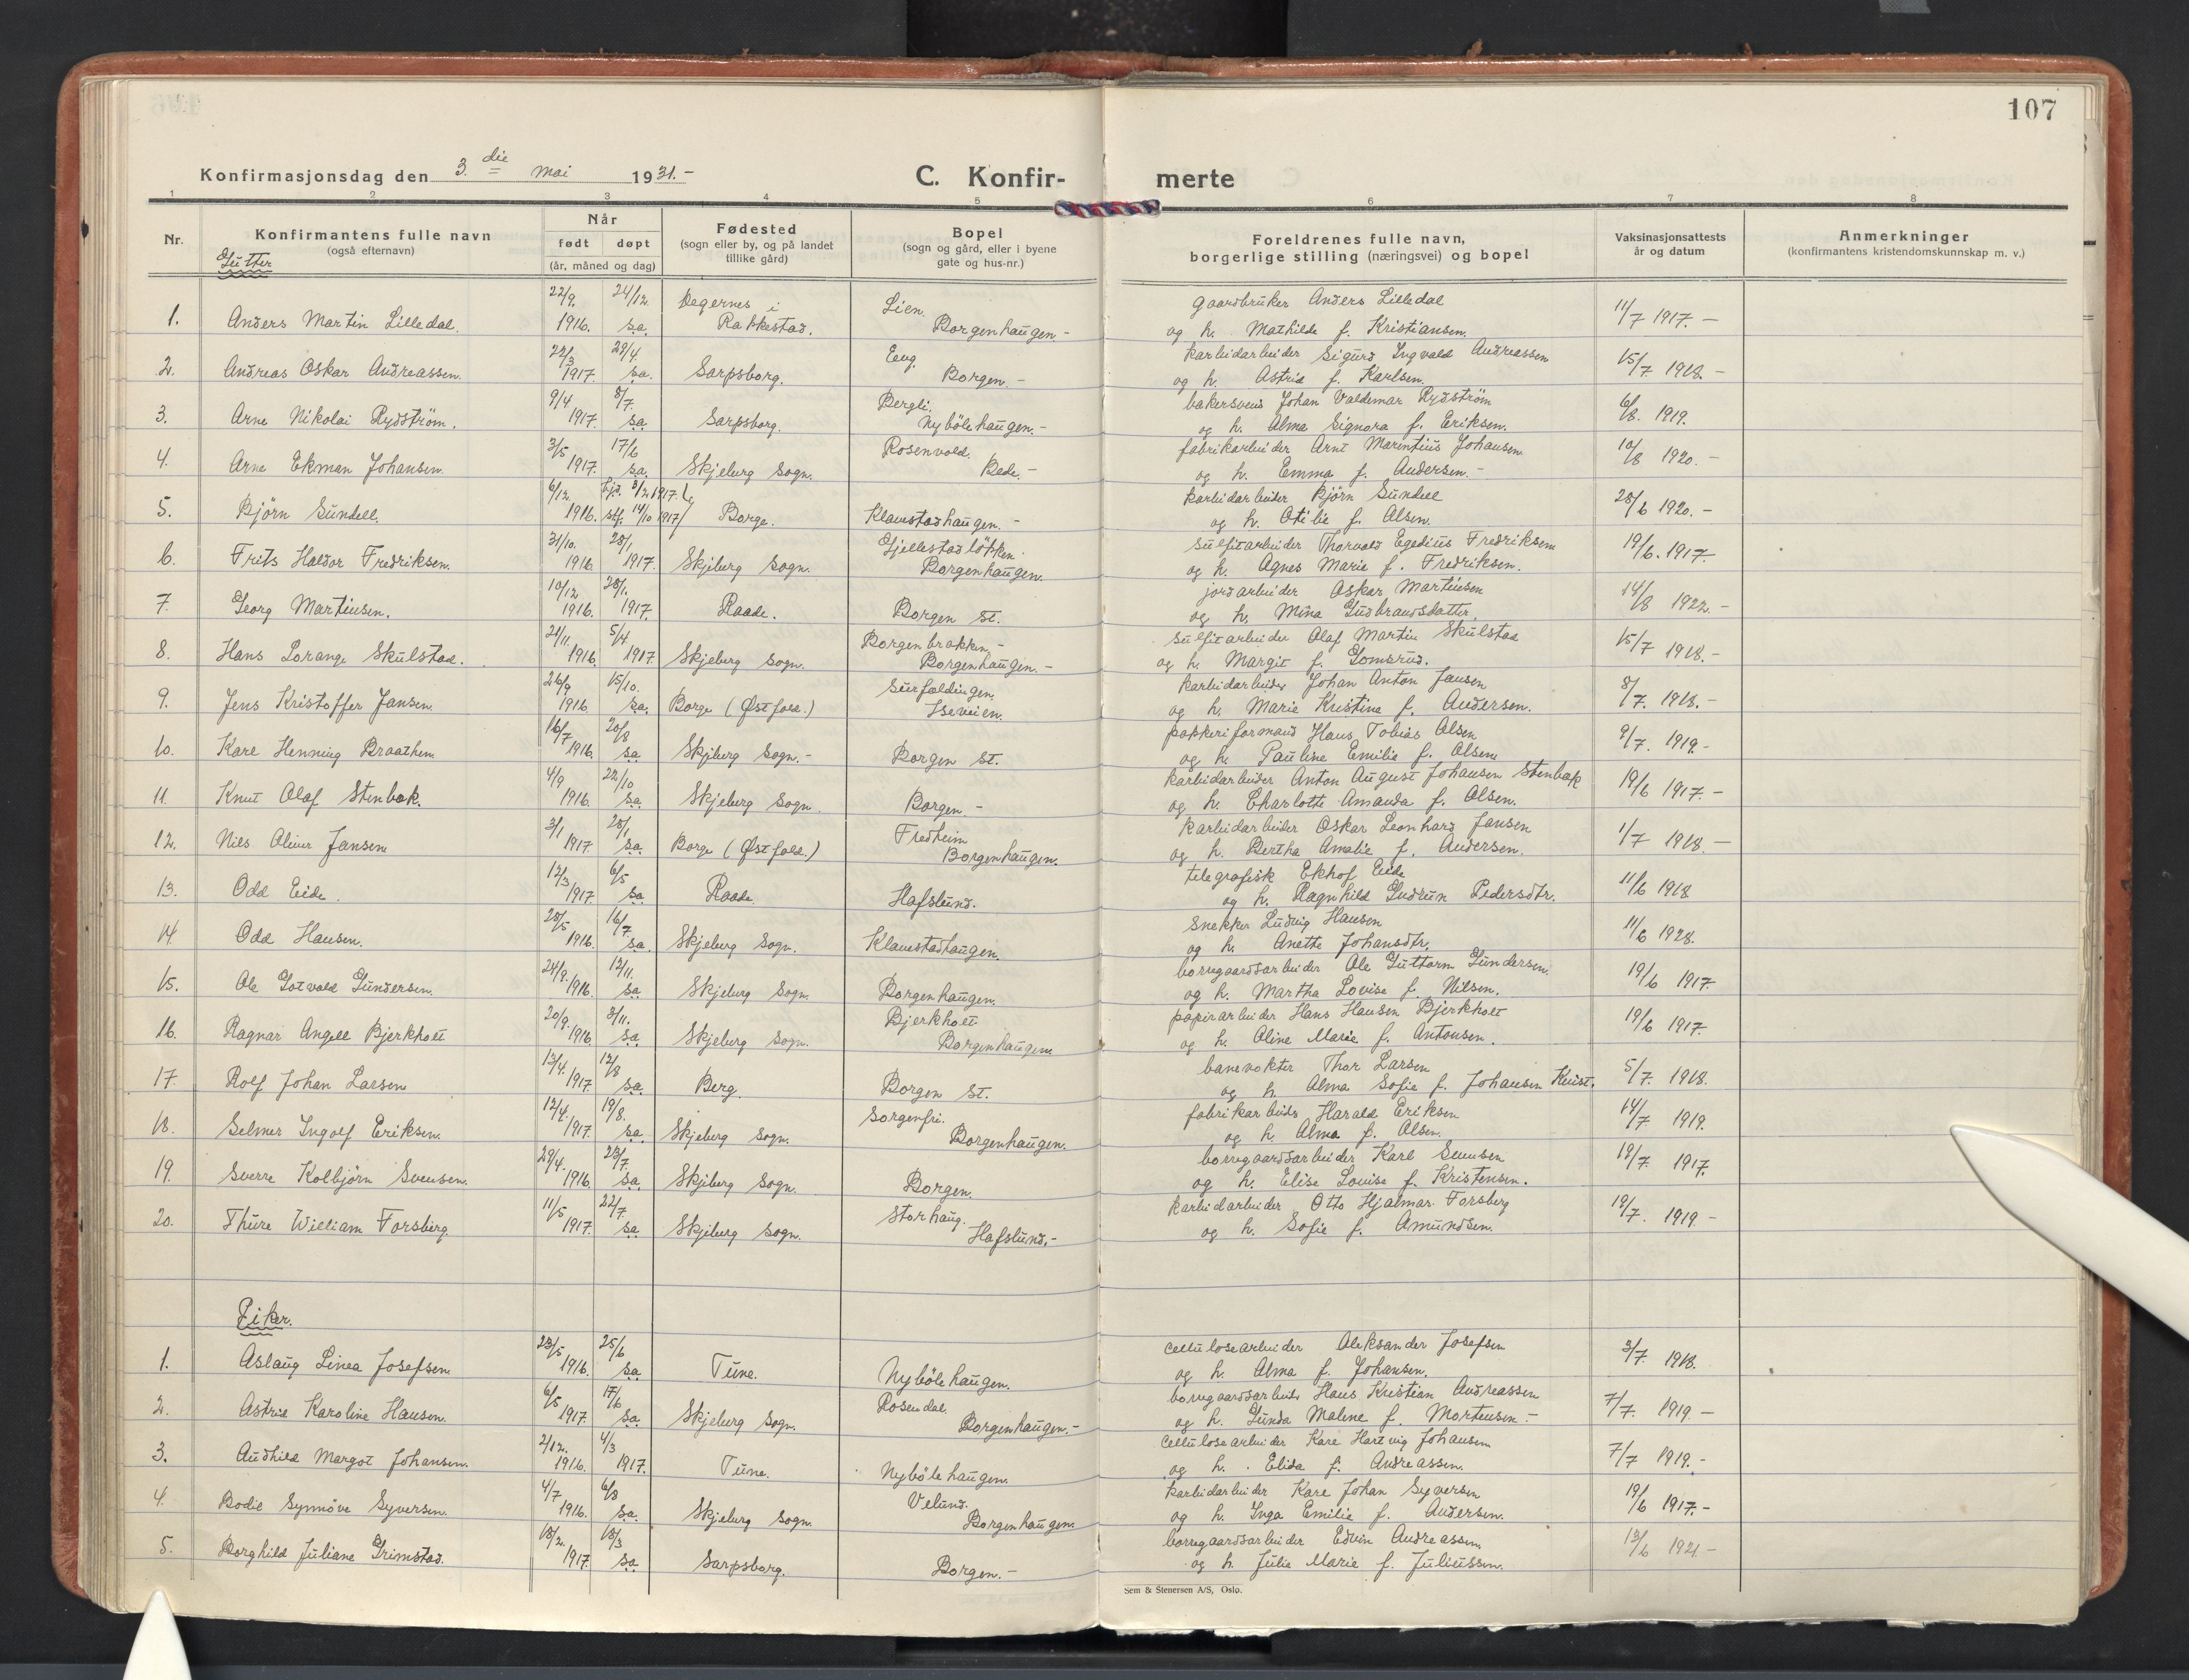 107
Konfirmasjonsdag den 3. die mai 1931.-
C. Konfir- merte
1 2 3 4 5 6 7 8
Nr.
Konfirmantens fulle navn
(også efternavn)
Gutter
Når
født døpt
(år, måned og dag)
Fødested
(sogn eller by, og på landet
tillike gård)
Bopel
(sogn og gård, eller i byene
gate og hus-nr.)
Foreldrenes fulle navn,
borgerlige stilling (næringsvei) og bopel
Vaksinasjonsattests
år og datum
Anmerkninger
(konfirmantens kristendomskunnskap m. v.)
22/9. 24/12. Degernes i Lien. gaardbruker Anders Lilledal
1. Anders Martin Lilledal. 1916. s.a. Rakkestad. Borgenhaugen - og h. Mathilde f. Kristiansen. 11/7 1917. -
22/3 29/4. Eeng karbidarbeider Sigurd Ingvald Andreassen
2. Andreas Oskar Andreassen. 1917. s.a. Sarpsborg. Borgen. - og h. Astrid f. Karlsen. 15/7 1918. -
9/4 8/7. Bergli. bakersvend Johan Valdemar Rydström
3. Arne Nikolai Rydström. 1917. s.a. Sarpsborg. Nybölehaugen. - og h. Alma Signora f. Eriksen. 6/8. 1919.
3/5 17/6 Rosenvold. fabrikarbeider Arnt Marentius Johansen
4. Arne Ekman Johansen. 1917. s.a. Skjeberg Sogn. Bede. - og h. Emma f. Andersen. - 10/8 1920. -
6/12. hjd. 3/2 1917. karbidarbeider Björn Sundell
5. Björn Sundell. 1916. stf. 14/10 1917 Borge. Klavestadhaugen. - og h. Otilie f. Olsen. 28/6 1920. -
31/10. 28/1. Gjellestadlökken. sulfitarbeider Thorvald Egedius Fredriksen
6. Frits Haldor Fredriksen. 1916. 1917. Skjeberg Sogn. Borgenhaugen. og h. Agnes Marie f. Fredriksen. 19/6. 1917.
10/12 28/1. jordarbeider Oskar Martinsen
7. Georg Martinsen. 1916. 1917. Raade. Borgen St. og h. Mina Gudbrandsdatter. 14/8 1922. -
21/11. 5/4 Borgenbrakken. - sulfitarbeider Olaf Martin Skulstad
8. Hans Lorange Skulstad. 1916. 1917. Skjeberg Sogn. Borgenhaugen. - og h. Margit f. Gomsrud. 15/7 1918. -
26/9 15/10. Surfoldingen. karbidarbeider Johan Anton Jansen
9. Jens Kristoffer Jansen. 1916. s.a. Borge (Østfold.) Iseveien. og h. Marie Kristine f. Andersen. 8/7. 1918. -
16/7 20/8 pakkeriformand Hans Tobias Olsen
10. Kare Henning Braathen 1916. s.a. Skjeberg Sogn. - Borgen St. og h. Pauline Emilie f. Olsen 9/7. 1919. -
4/9 22/10 karbidarbeider Anton August Johansen Stenbæk
11. Knut Olaf Stenbæk. 1916. s.a. Skjeberg Sogn Borgen. - og h. Charlotte Amanda f. Olsen. 19/6 1917. -
3/1 28/1 Fredheim karbidarbeider Oskar Leonhard Jansen
12. Nils Oliver Jansen 1917. s.a. Borge (Østfold.) Borgenhaugen. og h. Bertha Amalie f. Andersen. 1/7 1918. -
12/3 6/5 telegrafist Ekhof Eide
13. Odd Eide. 1917. s.a. Raade. Hafslund. og h. Ragnhild Gudrun Pedersdtr. 11/6 1918
28/5 16/7 snekker Ludvig Hansen
14. Odd Hansen. 1916. s.a. Skjeberg Sogn. Klavestadhaugen. og h. Anette Johansdtr. 11/6 1928.
24/9. 12/11. borregaardsarbeider Ole Guttorm Gundersen.
15. Ole Gotvald Gundersen. 1916. s.a. Skjeberg Sogn. Borgenhaugen. og h. Martha Lovise f. Nilsen. 19/6 1917.
20/9. 3/11. Bjerkholt papirarbeider Hans Hansen Bjerkholt
16. Ragnar Angell Bjerkholt 1916. s.a. Skjeberg Sogn. Borgenhaugen og h. Oline Marie f. Antonsen. 19/6 1917.
13/4. 12/8 banevokter Thor Larsen
17. Rolf Johan Larsen 1917. s.a. Berg. Borgen St. og h. Alma Sofie f. Johansen 5/7. 1918.
12/4. 19/8. Sorgenfri. fabrikarbeider Harald Eriksen
18. Selmer Ingolf Eriksen. 1917. s.a. Skjeberg Sogn. Borgenhaugen. og h. Alma f. Olsen. 14/7 1919.
29/4. 23/7 borregaardsarbeider Karl Svensen
19. Sverre Kolbjörn Svensen. 1916. s.a. Skjeberg Sogn. Borgen. og h. Elise Lovise f. Kristensen. 19/7. 1917.
11/5 22/7. Storhaug. karbidarbeider Otto Hjalmar Forsberg
20. Thure William Forsberg. 1917. s.a. Skjeberg Sogn. Hafslund. - og h. Sofie f. Amundsen. 19/7. 1919 -
Piker.
23/5 25/6 cellulosearbeider Aleksander Josefsen
1. Aslaug Linea Josefsen 1916. s.a. Tune. Nybölehaugen. og h. Alma f. Johansen. 3/7. 1918.
6/5 17/6 Rosendal. borregaardsarbeider Hans Kristian Andreassen
2. Astrid Karoline Hansen. 1917. s.a. Skjeberg Sogn. Borgenhaugen. - og h. Gunda Malene f. Mortensen - 7/7. 1919 -
2/12. 4/3 cellulosearbeider Kare Hartvig Johansen
3. Audhild Margot Johansen. 1916. 1917. Tune. Nybölehaugen. og h. Elida f. Andreassen. 7/7 1919. -
4/7 6/8 Velund. karbidarbeider Kare Johan Syversen
4. Bodil Synnöve Syversen. 1916. s.a. Skjeberg Sogn. Borgenhaugen. og h. Inga Emilie f. Andersen. 19/6 1917. -
18/2. 18/3 borregaardsarbeider Edvin Andreassen
5. Borghild Juliane Grimstad. 1917. s.a. Sarpsborg. Borgen. - og h. Julie Marie f. Juliussen. 13/6 1921. -
Sem & Stenersen A/S, Oslo.